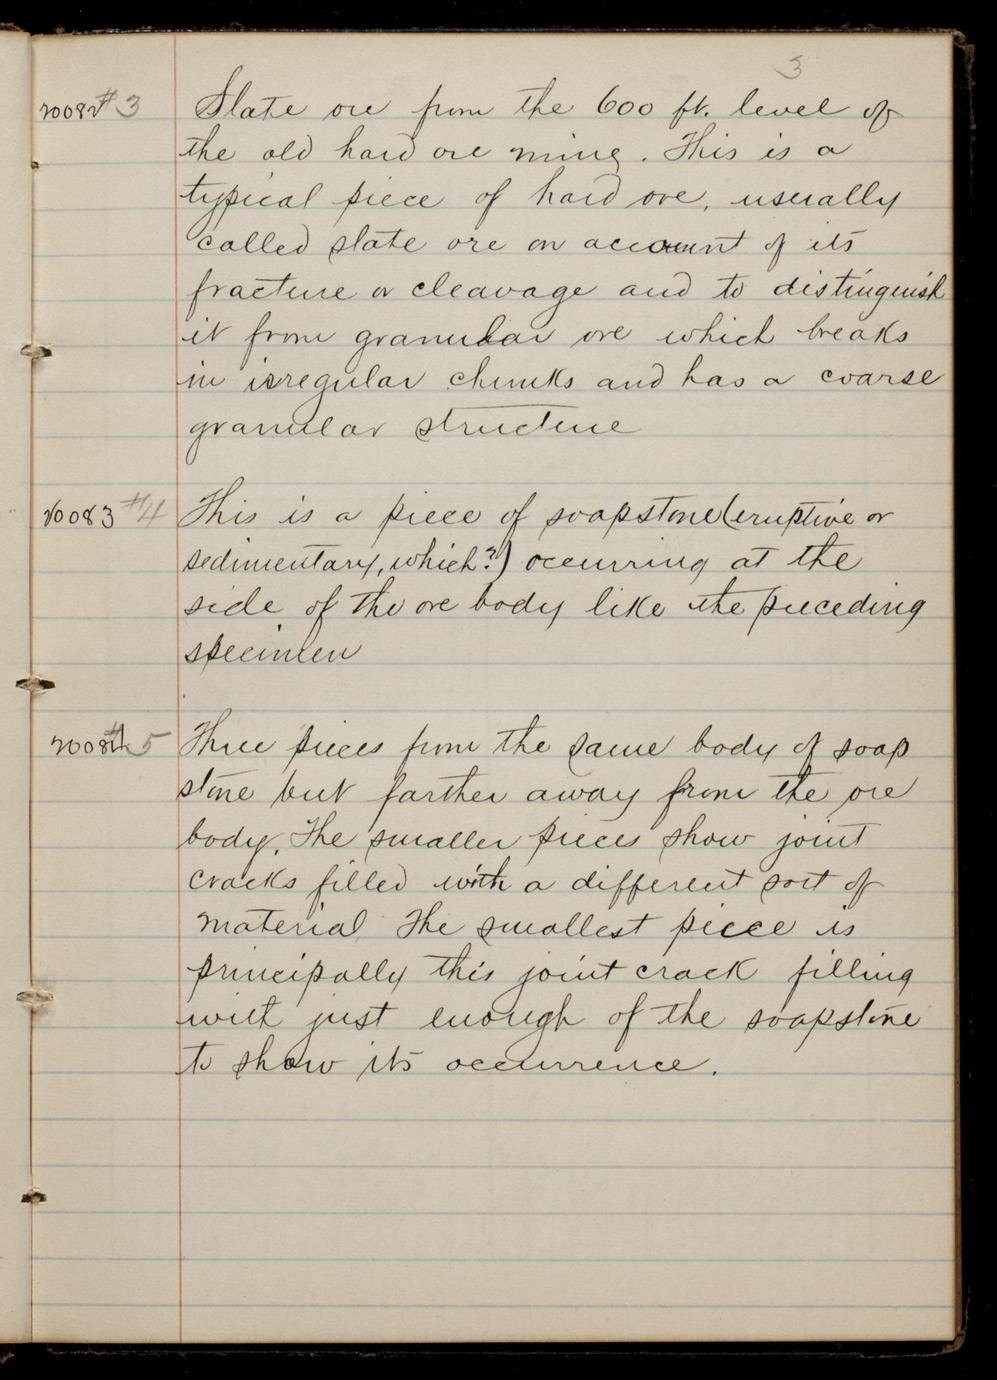 3
20082 #3 Slate ore from the 600 ft. level of
the old hard ore mine. This is a
typical piece of hard ore, usually
called slate ore on account of its
fracture or cleavage and to distinguish
it from granular ore which breaks
in irregular chunks and has a coarse
granular structure
20083 #4 This is a piece of soapstone (eruptive or
sedimentary, which?) occurring at the
side of the ore body like the preceding
specimen
20084 #5 Three pieces from the same body of soap
stone but farther away from the ore
body. The smaller pieces show joint
cracks filled with a different sort of
material The smallest piece is
principally this joint crack filling
with just enough of the soapstone
to show its occurrence.